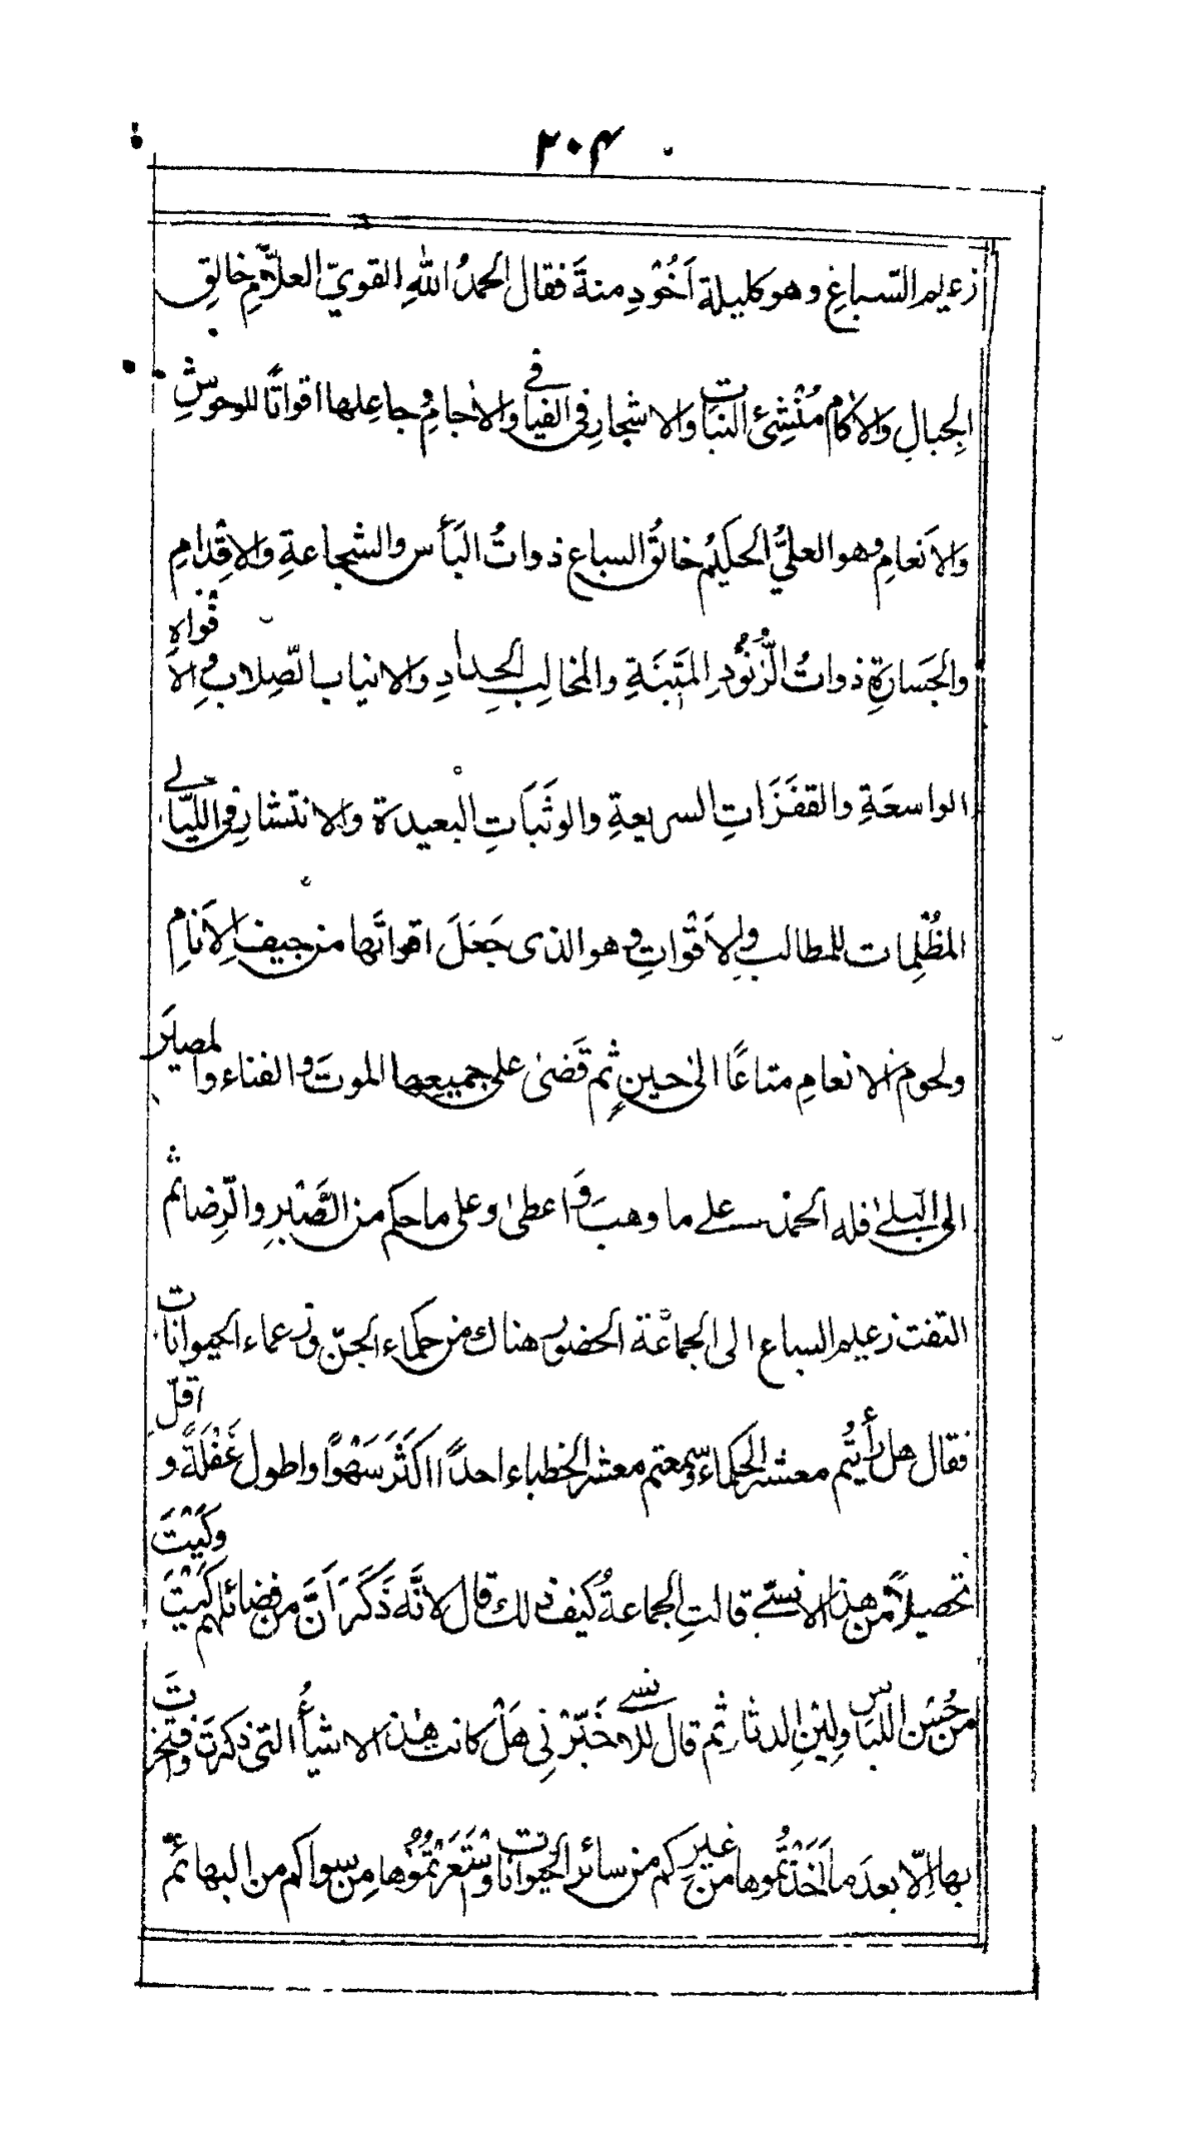 ٢٠۴
زعيم السّباعِ وهو كليلة اَخُوْدِ منةَ فقال الحمدُ اللهِ القويّ العلّامِ خالقِ
الجِبالِ والاٰكامِ مُنْشِئِ النبات والاشجارِ فى الفيافى والاٰجامِ وجاعِلها اقواتًا للوحوشِ
والاَنعامِ وهو العليُّ الحكيمُ خالقُ السباع ذواتُ البَأس والشجاعةِ والاِقْدامِ
والجَسارةِ ذواتُ الزُّنوُدِ المَتِينَةِ والمخالِبِ الحِدادِ والانيابِ الصِّلابِ والاَفواهِ
الواسعَةِ والقفَزَاتِ السريعةِ والوثَبَاتِ البعيدة والانتشارِ فى اللّيالے
المُظْلِمات للمطالب ولِلاَقْواتِ وهو الذى جَعَلَ اقواتَها من جيفِ الاَنامِ
ولحومِ الانعامِ متاعًا الىٰ حينٍ ثم قَضىٰ على جميعِها الموتَ والفناء والمصيرَ
الى البِلےٰ فله الحمد علے ما وهبَ وَاعطىٰ وعلى ما حكم من الصَّبْرِ والرِّضا ثم
التفت زعيم السباع الى الجماعَة الحضور هناك من حكماء الجنّ وزعماء الحيوانات
فقال هل رأيتُم معشر الحكماء وسمعتم معشر الخطباء احدًا اكَثَرَ سَهْوًا واطول غَفْلَةً و اقلّ
تحصيلًا من هذا الانسّے قالتِ الجماعةُ كيف ذلك قال لانَّه ذَكَرَ اَنَّ من فضائلهم كَيْتَ وكَيْتَ
من حُسْنِ اللباس ولِيْنِ الدثار ثم قال للانسے خَبّرْنِى هَلْ كانت هٰذه الاشيأُ التى ذكرتَ وفتخرتَ
بها اِلّا بعدَ ما اَخَذْتُموها من غيرِكم من سائر الحيوانات وَسْتَعَرْتُمُوُها مِن سِواكم من البهائم